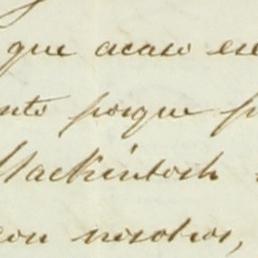 que acaso
porque
Mackintosh
con nosotros,